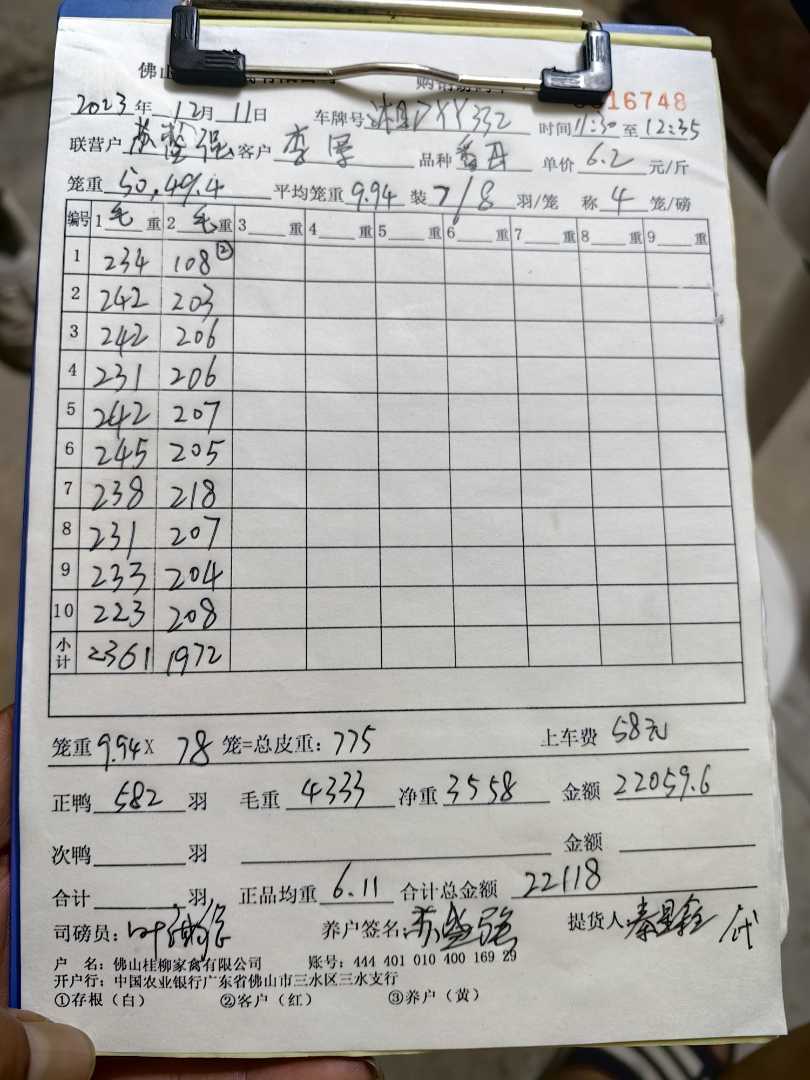 佛山
16748
2023年 12月 11日 车牌号 332 时间 11:30 至 12:35
联营户 苏 强 客户 李 品种 单价 6.2 元/斤
笼重 50,49.4 平均笼重 9.94 装 7/8 羽/笼 称 4 笼/磅
编号 1 毛 重 2 毛 重 3 重 4 重 5 重 6 重 7 重 8 重 9 重
1 234 108②
2 242 203
3 242 206
4 231 206
5 242 207
6 245 205
7 238 218
8 231 207
9 233 204
10 223 208
小计 2361 1972
笼重 9.94 X 78 笼=总皮重: 775 上车费 58元
正鸭 582 羽 毛重 4333 净重 3558 金额 22059.6
次鸭 羽 金额
合计 羽 正品均重 6.11 合计总金额 22118
司磅员: 叶 养户签名: 苏 强 提货人: 秦 代
户 名: 佛山桂柳家禽有限公司 账号: 444 401 010 400 169 29
开户行: 中国农业银行广东省佛山市三水区三水支行
①存根（白） ②客户（红） ③养户（黄）